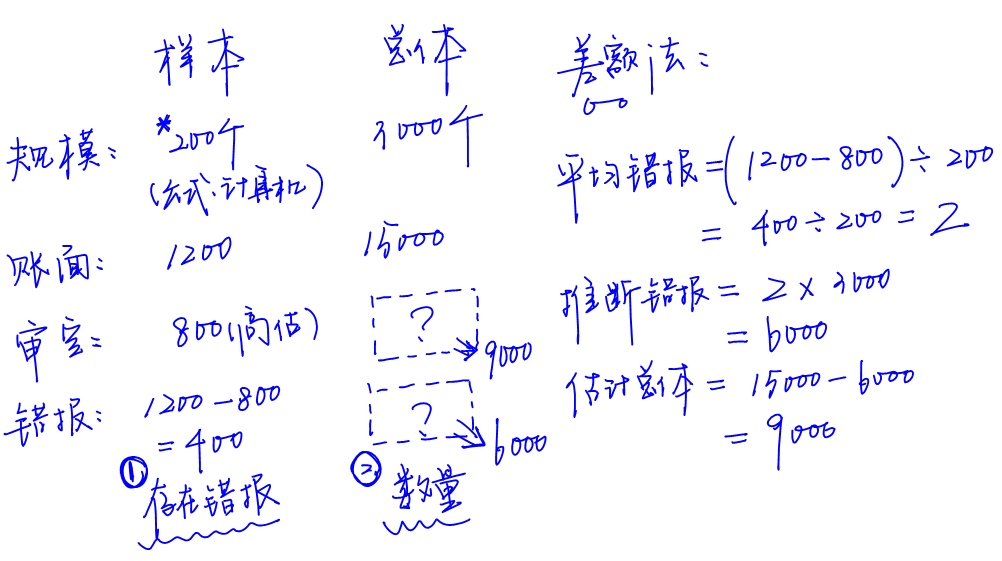 样本 总体
规模: *200个 3000个
(公式、计算机)
账面: 1200 15000
审定: 800(高估) ? 9000
错报: 1200-800 ? 6000
=400
① 存在错报 ② 数量
差额法:
平均错报=(1200-800)÷200
= 400÷200=2
推断错报= 2×3000
= 6000
估计总体= 15000-6000
= 9000